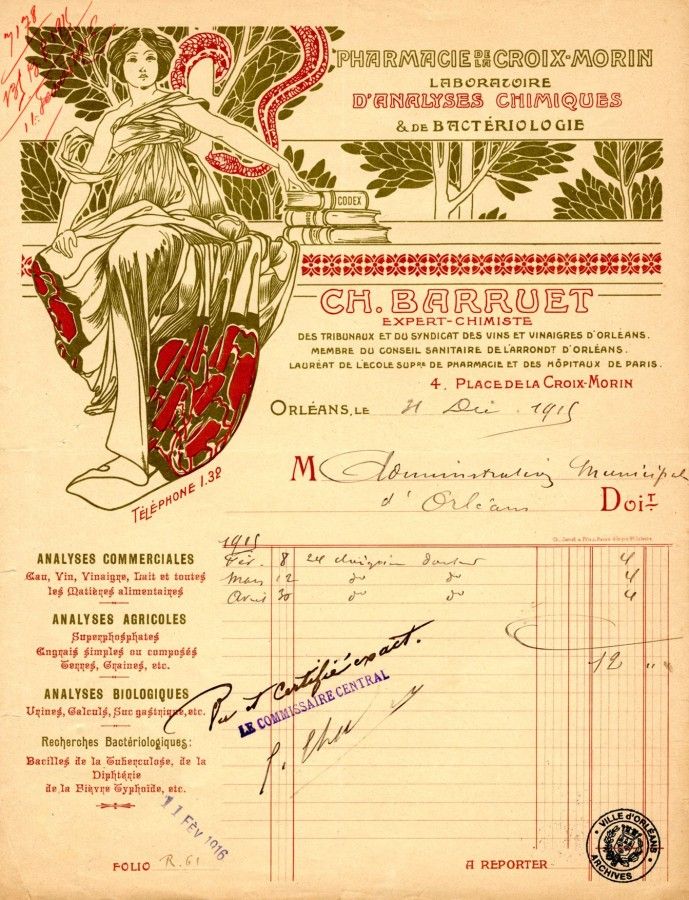 7178
PHARMACIE DE LA CROIX-MORIN
LABORATOIRE
D'ANALYSES CHIMIQUES
& DE BACTÉRIOLOGIE
CODEX
CH. BARRUET
EXPERT-CHIMISTE
DES TRIBUNAUX ET DU SYNDICAT DES VINS ET VINAIGRES D'ORLÉANS.
MEMBRE DU CONSEIL SANITAIRE DE L'ARRONDT D'ORLÉANS.
LAURÉAT DE L'ECOLE SUPRE DE PHARMACIE ET DES HÔPITAUX DE PARIS.
4, PLACE DE LA CROIX-MORIN
ORLÉANS, LE 31 Déc 1915
TÉLÉPHONE 1.32
M Administration Municipale
d'Orléans DOIT
1915
Fév. 8 24 4
Mars 12 do do 4
Avril 30 do do 4
12 " "
ANALYSES COMMERCIALES
Eau, Vin, Vinaigre, Lait et toutes
les Matières alimentaires
ANALYSES AGRICOLES
Superphosphates
Engrais simples ou composés
Terres, Graines, etc.
ANALYSES BIOLOGIQUES
Urines, Calculs, Suc gastrique, etc.
Recherches Bactériologiques:
Bacilles de la Tuberculose, de la
Diphtérie
de la Fièvre Typhoïde, etc.
Vu et certifié exact.
LE COMMISSAIRE CENTRAL
11 FÉV 1916
FOLIO R. 61
A REPORTER
VILLE D'ORLÉANS
ARCHIVES